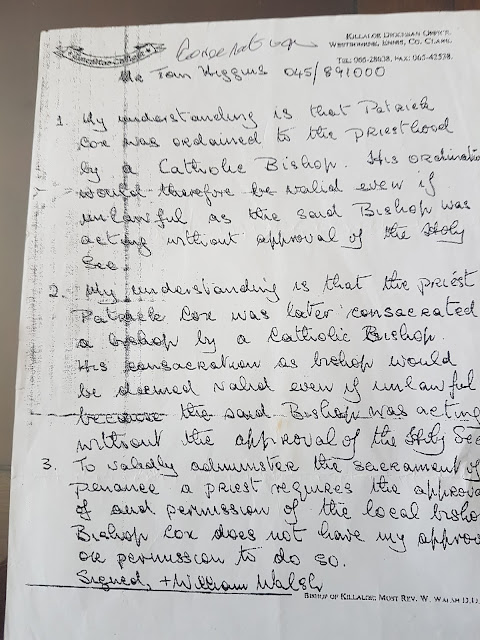 KILLALOE DIOCESAN OFFICE,
WESTBOURNE, ENNIS, CO. CLARE.
TEL: 065-28638, FAX: 065-42538.
Consecration
Mr Tom Higgins 045/891000
1. My understanding is that Patrick
Cox was ordained to the priesthood
by a Catholic Bishop. His ordination
would therefore be valid even if
unlawful as the said Bishop was
acting without approval of the Holy
See.
2. My understanding is that the priest
Patrick Cox was later consacrated
a bishop by a Catholic Bishop.
His consacration as bishop would
be deemed valid even if unlawful
because the said Bishop was acting
without the approval of the Holy See
3. To validly administer the sacrament of
penance a priest requires the approva
of and permission of the local bisho
Bishop Cox does not have my approv
or permission to do so.
Signed, +William Walsh
BISHOP OF KILLALOE: MOST REV. W. WALSH D.D.